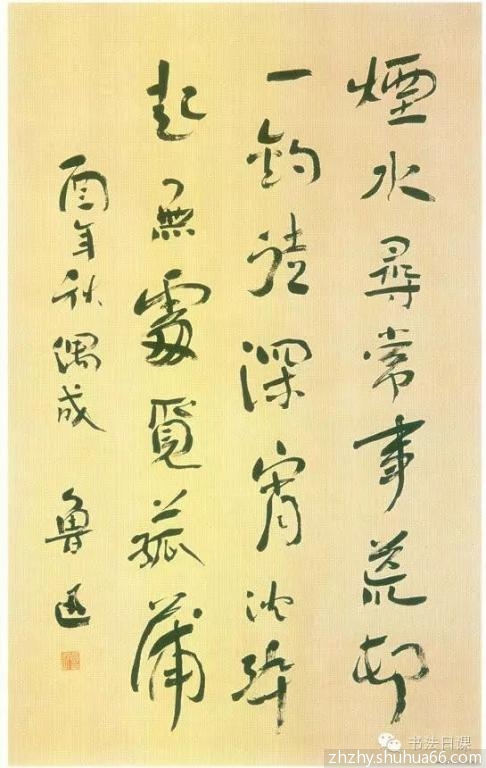 煙水尋常事荒邨
一釣徒深宵沈醉
起無處覓菰蒲
酉年秋偶成
魯迅
书法日课
zhzhy.shuhua66.com